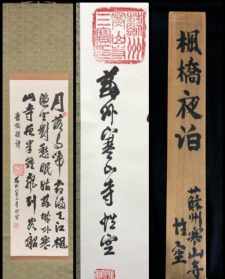 楓橋夜泊
蘇州寒山寺
性空
蘇州寒山寺性空
月落烏啼霜滿天江楓
漁火對愁眠姑蘇城外寒
山寺夜半鐘聲到客船